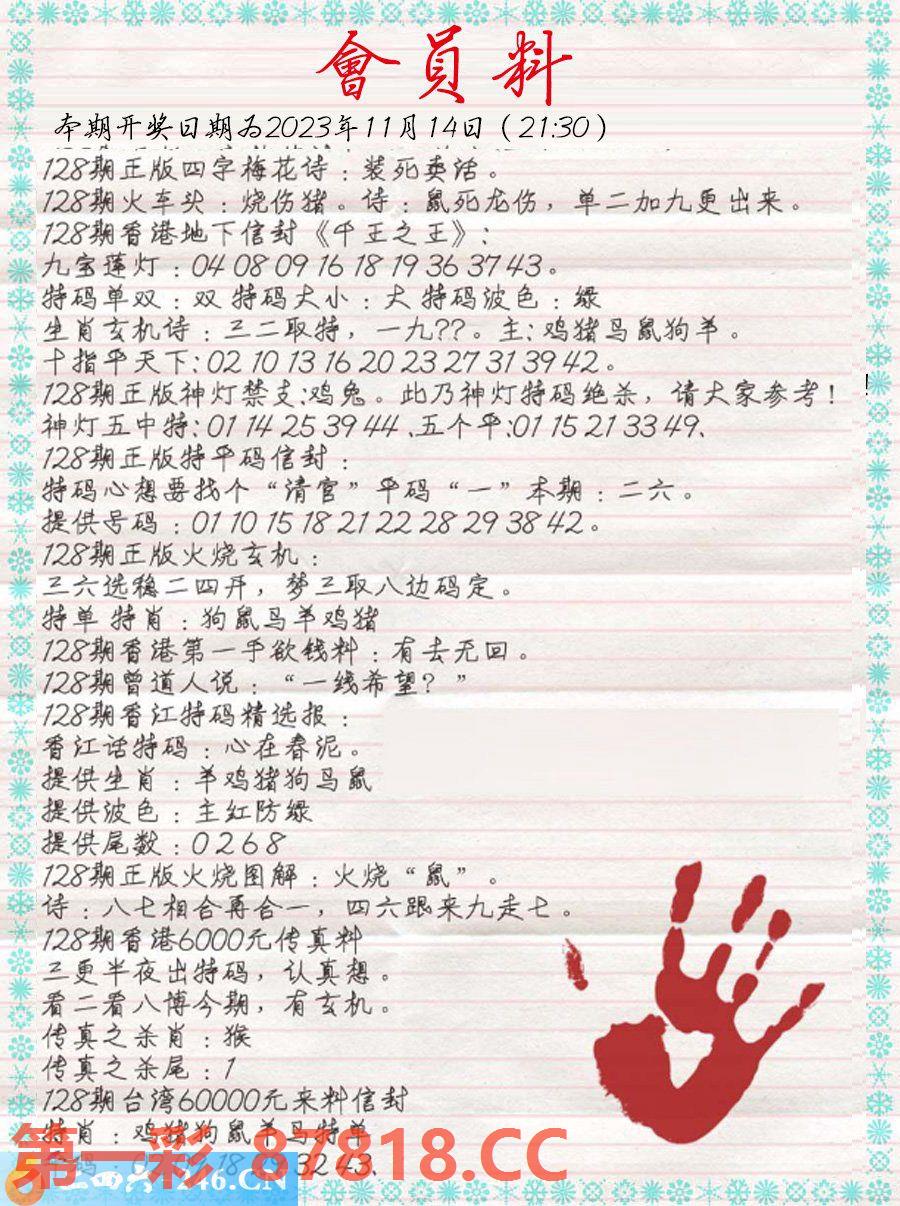 會員料
本期开奖日期为2023年11月14日（21:30）
128期正版四字梅花诗：装死卖活。
128期火车头：烧伤猪。诗：鼠死龙伤，单二加九更出来。
128期香港地下信封《千王之王》：
九宝莲灯：04 08 09 16 18 19 36 37 43。
特码单双：双 特码大小：大 特码波色：绿
生肖玄机诗：三二取特，一九??。主：鸡猪马鼠狗羊。
十指平天下：02 10 13 16 20 23 27 31 39 42。
128期正版神灯禁支:鸡兔。此乃神灯特码绝杀，请大家参考！
神灯五中特：01 14 25 39 44 、五个平：01 15 21 33 49、
128期正版特平码信封：
特码心想要找个“清官”平码“一”本期：二六。
提供号码：01 10 15 18 21 22 28 29 38 42。
128期正版火烧玄机：
三六选稳二四开，梦三取八边码定。
特单 特肖：狗鼠马羊鸡猪
128期香港第一手欲钱料：有去无回。
128期曾道人说：“一线希望？”
128期香江特码精选报：
香江话特码：心在春泥。
提供生肖：羊鸡猪狗马鼠
提供波色：主红防绿
提供尾数：0 2 6 8
128期正版火烧图解：火烧“鼠”。
诗：八七相合再合一，四六跟来九走七。
128期香港6000元传真料
三更半夜出特码，认真想。
看二看八博今期，有玄机。
传真之杀肖：猴
传真之杀尾：1
128期台湾60000元来料信封
特肖：鸡猪狗鼠羊马特单
18 32 43、
第一彩 87818.CC
二四六 246.CN